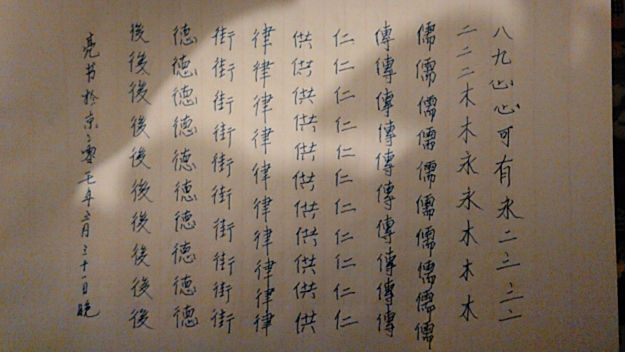 八九心心可有永二三三三
二二二木木永永木木木
儒儒儒儒儒儒儒儒儒儒
傳傳傳傳傳傳傳傳傳傳
仁仁仁仁仁仁仁仁仁仁仁
供供供供供供供供供供供
律律律律律律律律律律
街街街街街街街街街街
德德德德德德德德德德
後後後後後後後後後後
亮书於京二零一七年三月三十一日晚